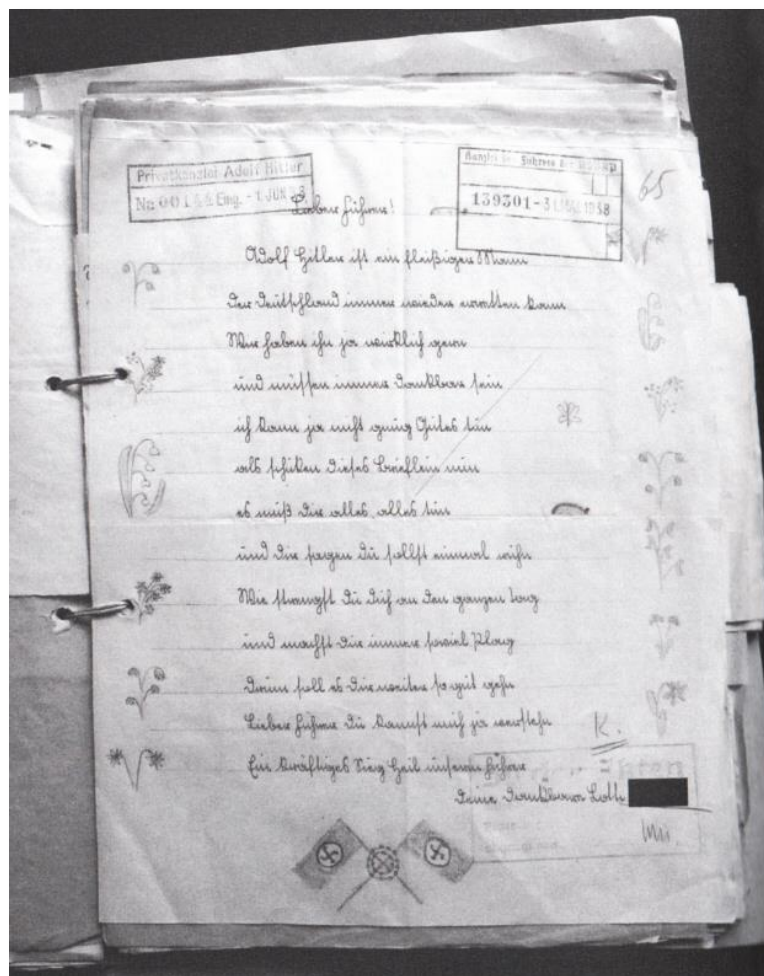 Privatkanzlei Adolf Hitler
Eing. - 1. JUN.
Kanzlei des Führers der NSDAP
139301 - 3 1938
65
Lieber Führer!
Adolf Hitler ist ein fleißiger Mann
der Deutschland immer wieder erretten kann
Wir haben ihn ja wirklich gern
und müssen immer dankbar sein
ich kann ja nicht genug Gutes tun
als schicken dieses Brieflein nun
es muß Dir alles, alles tun
und Dir sagen Du sollst einmal ruhn
Wie strengst Du Dich an den ganzen Tag
und machst Dir immer soviel Plag
Drum soll es Dir weiter so gut gehn
Lieber Führer Du kannst mich ja verstehn
K.
Ein kräftiges Sieg Heil unserm Führer
Deine dankbare Lotte